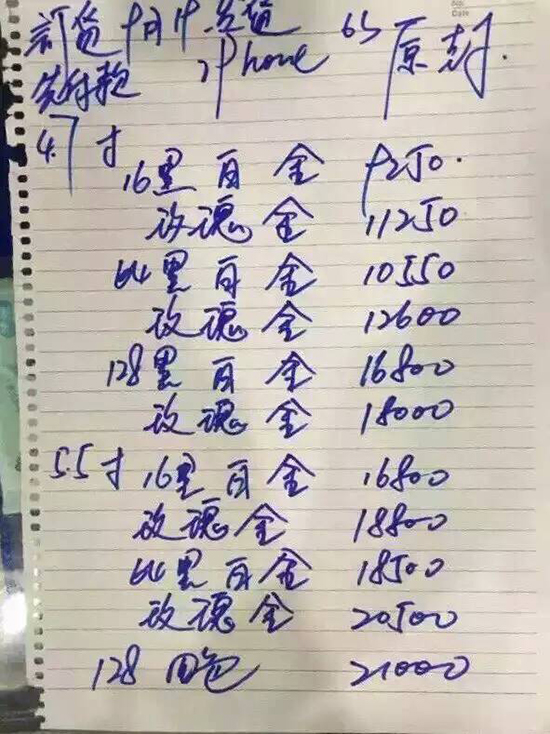 訂货 9月19号货 iPhone 6S 原封
先付款
4.7寸
16黑白金 9250.
玫瑰金 11250
64黑白金 10550
玫瑰金 12600
128黑白金 16800
玫瑰金 18000
5.5寸 16黑白金 16800
玫瑰金 18800
64黑白金 18500
玫瑰金 20500
128 四色 21000